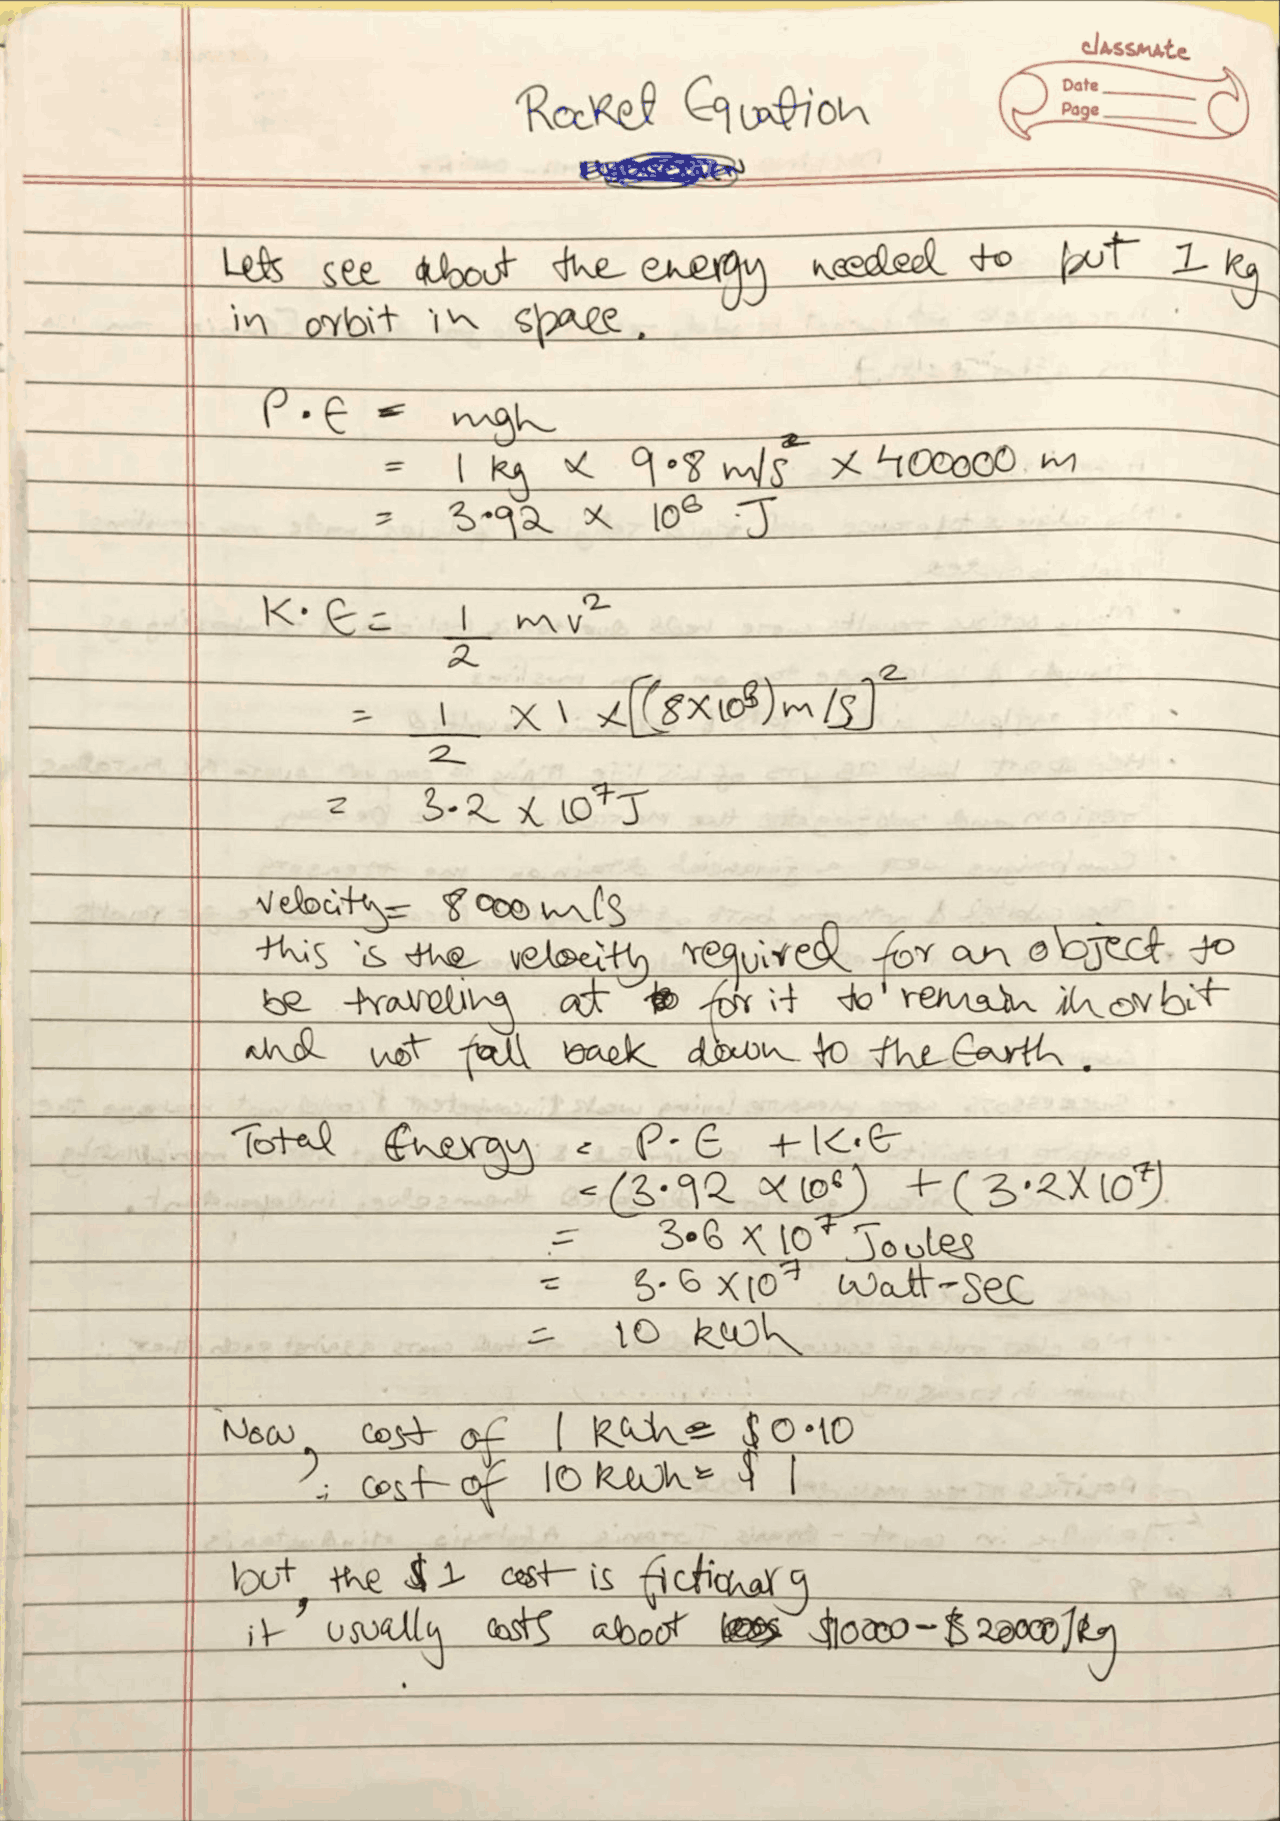 classmate
Date
Page
Rocket Equation
Lets see about the energy needed to put 1 kg
in orbit in space.
P.E = mgh
= 1 kg × 9.8 m/s² × 400000 m
= 3.92 × 10⁶ J
K.E = 1/2 mv²
= 1/2 × 1 × [(8×10³)m/s]²
= 3.2 × 10⁷ J
velocity = 8000 m/s
this is the velocity required for an object to
be traveling at for it to remain in orbit
and not fall back down to the Earth.
Total Energy = P.E + K.E
= (3.92 × 10⁶) + (3.2×10⁷)
= 3.6 × 10⁷ Joules
= 3.6 × 10⁷ Watt-sec
= 10 kwh
Now, cost of 1 kwh = $0.10
∴ cost of 10 kwh = $ 1
but, the $1 cost is fictionary
it usually costs about $10000 - $20000/kg